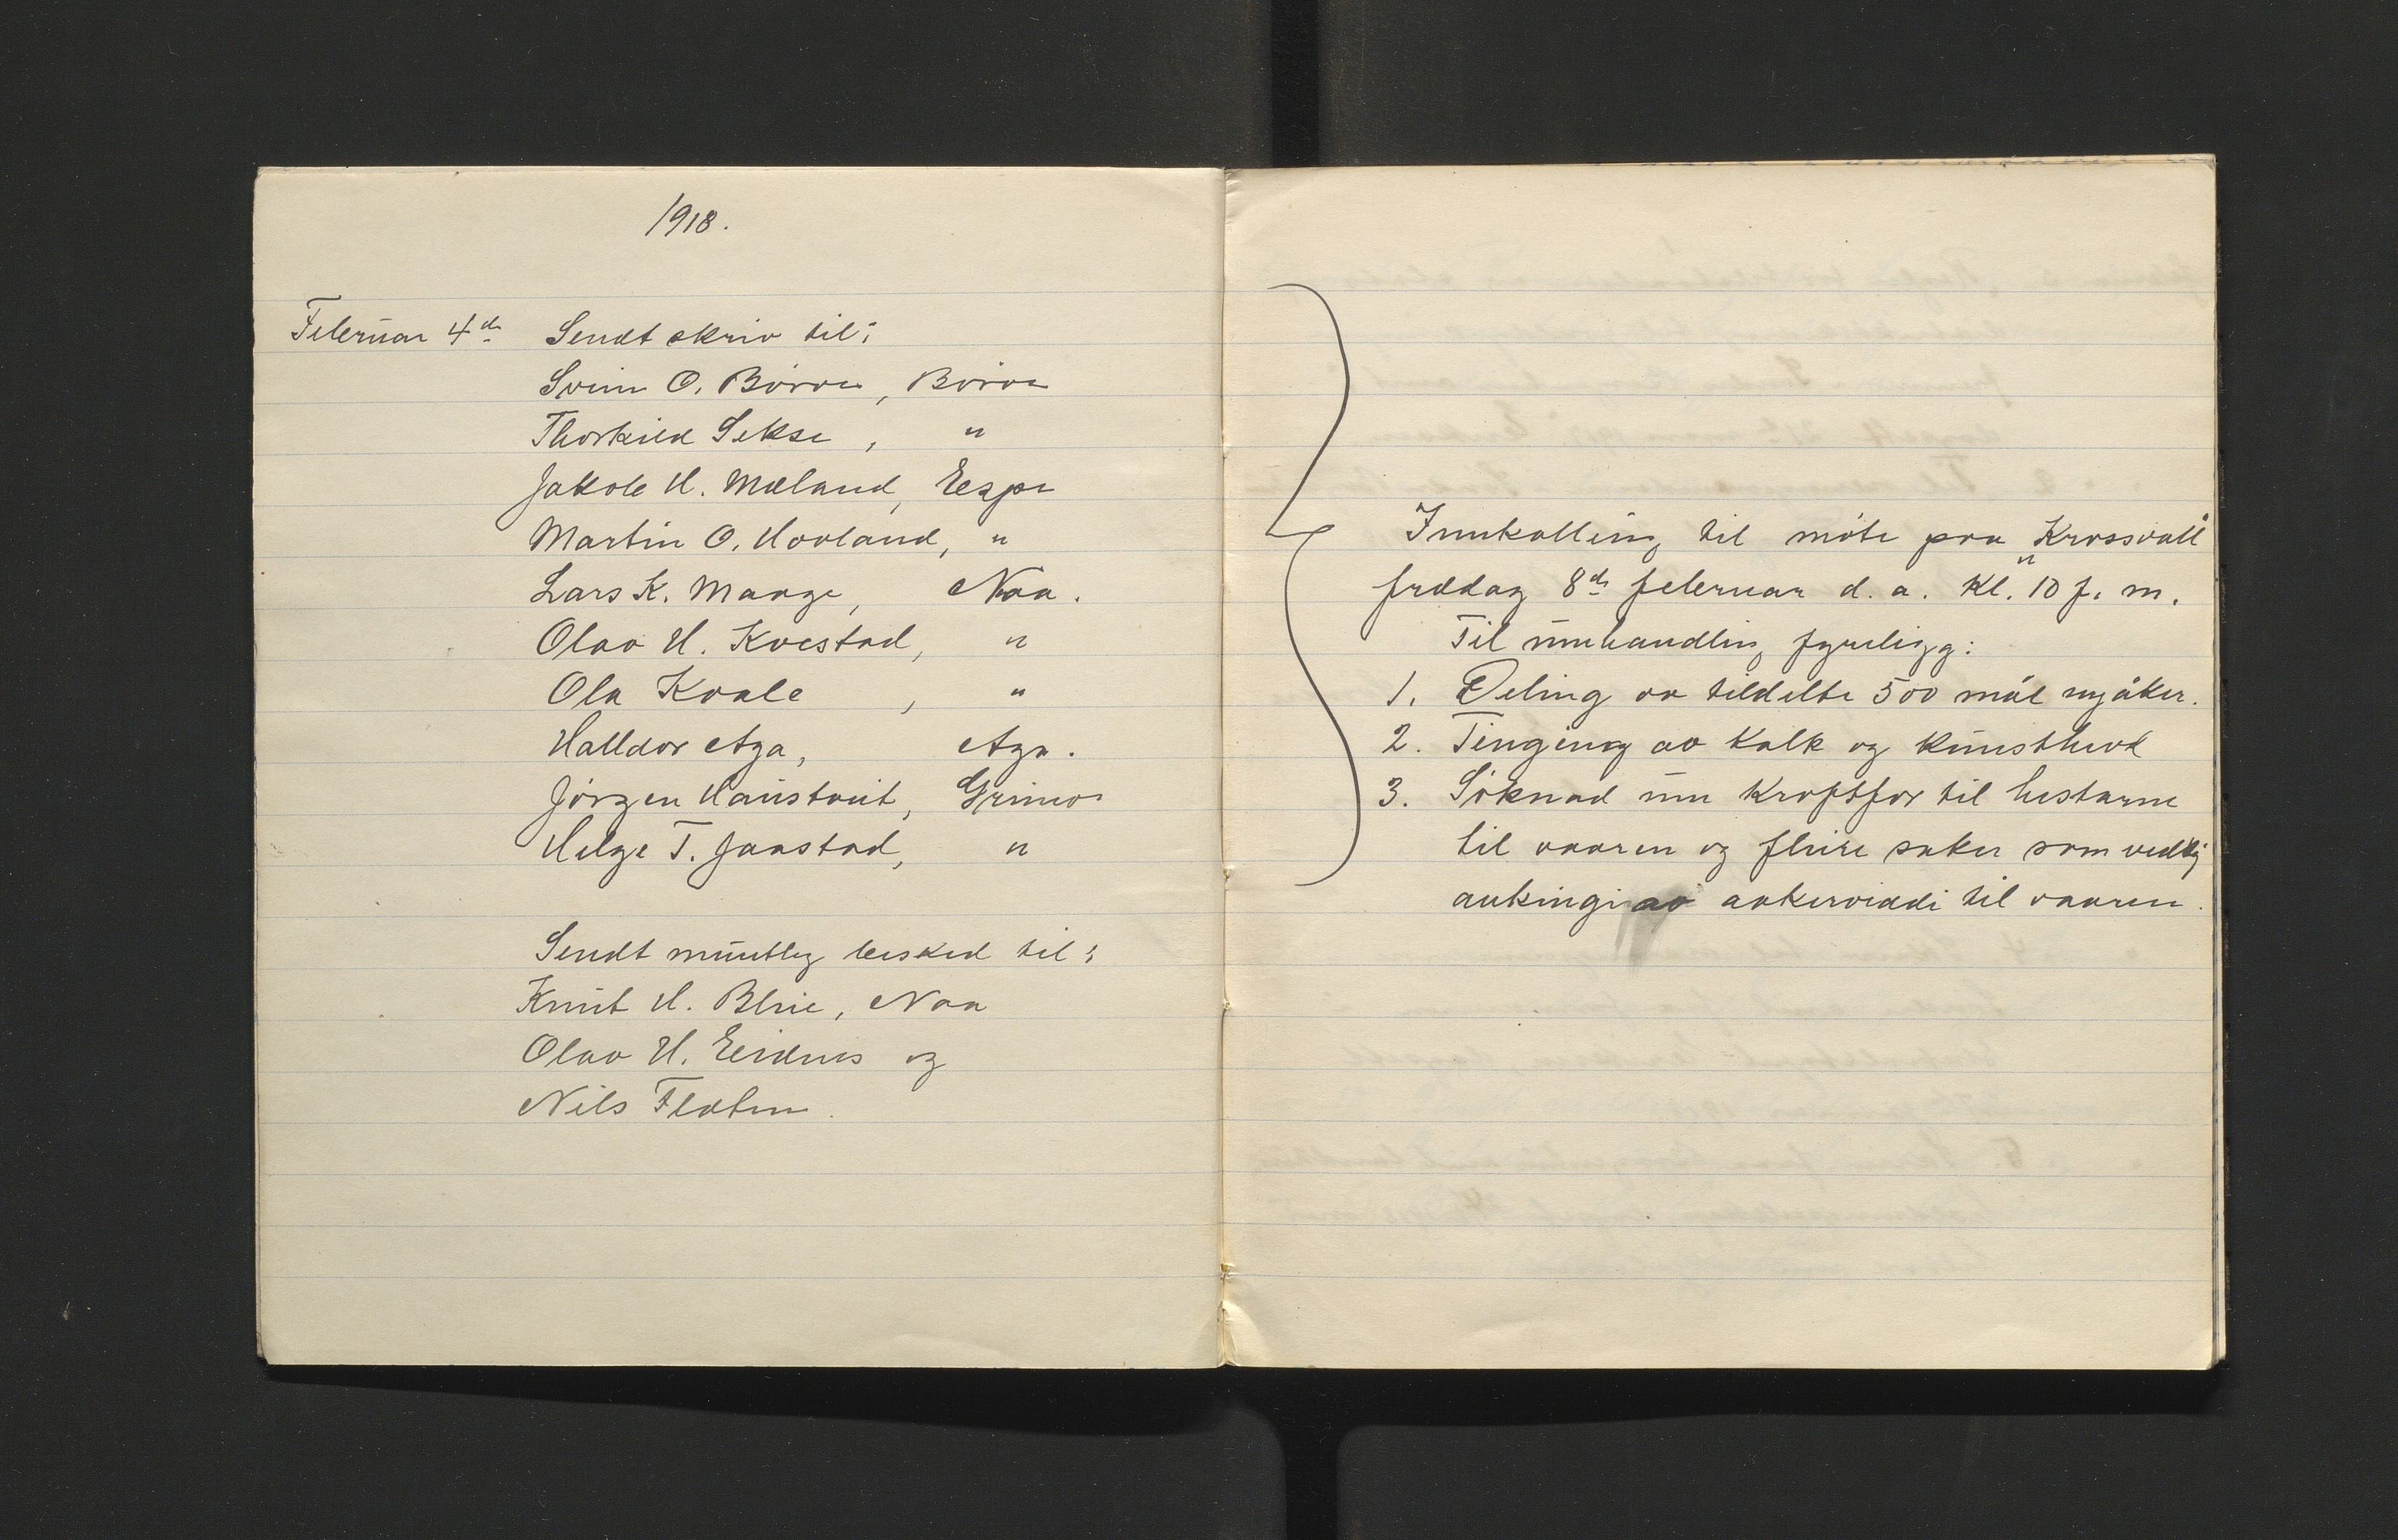 1918.
Februar 4de Sendt skriv til:
Svein O. Börve, Börve
Thorkild Sekse, "
Jakob H. Mæland, Espe
Martin O. Hovland, "
Lars K. Mauge, Naa.
Olav H. Kvestad, "
Ola Kvale, "
Halldor Aga, Aga.
Jörgen Haustveit, Grimo
Helge T. Jaastad, "
Sendt muntleg beskjed til:
Knut H. Bleie, Naa
Olav H. Eidnes og
Nils Floten.
Innkalling til möte paa "Krossvoll"
fredag 8de februar d. a. kl. 10 f. m.
Til umhandling fyreligg:
1. Deling av tildelte 500 mål nyåker.
2. Tinging av kalk og kunsthevd
3. Söknad um kraftfor til hestarne
til vaaren og fleire saker som vedkj
aukingi av aakerviddi til vaaren.